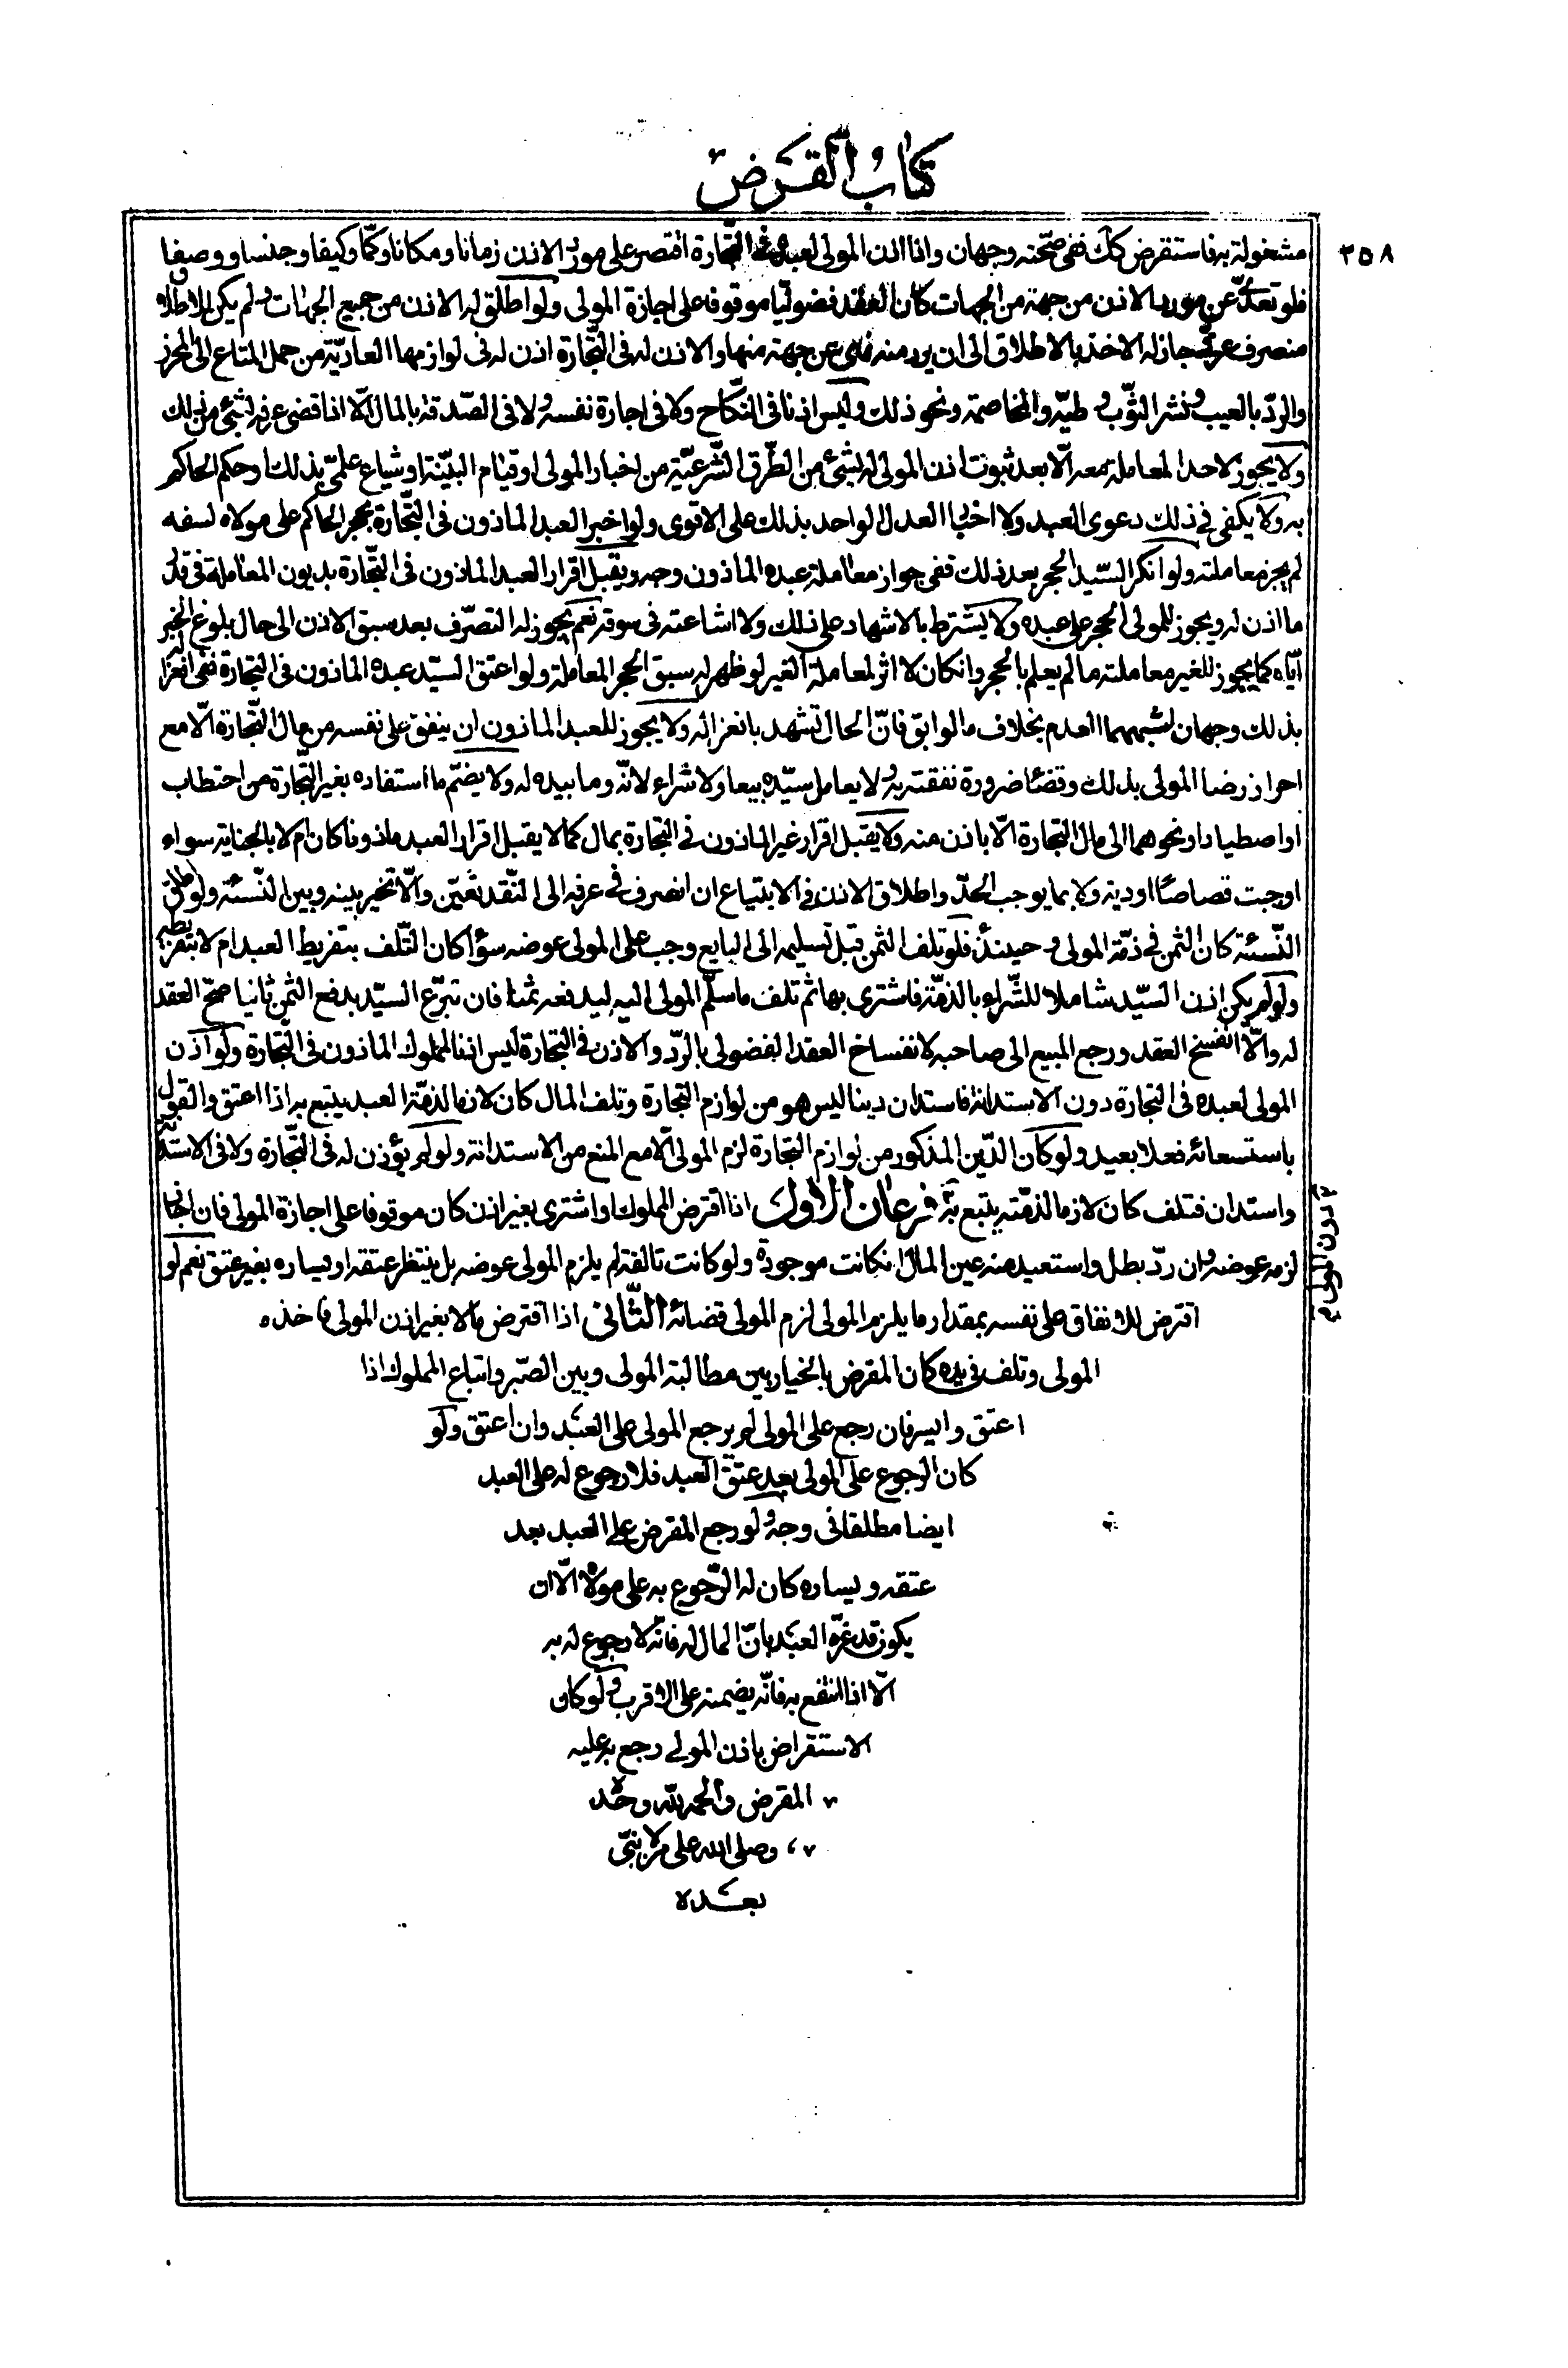 كتاب القرض
٣٥٨
مشغولة به فاستقرض كك ففى صحّته وجهان واذا اذن المولى لعبده فى التّجارة اقتصر على مورد الاذن زمانا ومكانا وكمّا وكيفا وجنسا ووصفا
فلو تعدّى عن مورد الاذن من جهة من الجهات كان العقد فضوليّا موقوفا على اجازة المولى ولو اطلق له الاذن من جميع الجهات ولم يكن للاطلاق
منصرف عرفى جاز له الاخذ بالاطلاق الى ان يرد منه نهى عن جهة منها والاذن له فى التّجارة اذن له فى لوازمها العاديّة من حمل المتاع الى المحرز
والردّ بالعيب ونشر الثّوب وطيّه والمخاصمة ونحو ذلك وليس اذنا فى النّكاح ولا فى اجارة نفسه ولا فى الصّدقة بالمال الّا اذا قضى عرف بشئ من ذلك
ولا يجوز لاحد المعاملة معه الّا بعد ثبوت اذن المولى له بشئ من الطّرق الشّرعيّة من اخبار المولى او قيام البيّنة او شياع علمىّ بذلك او حكم الحاكم
به ولا يكفى فى ذلك دعوى العبد ولا اخبار العدل الواحد بذلك على الاقوى ولو اخبر العبد الماذون فى التّجارة بحجر الحاكم على مولاه لسفه
لم يجز معاملته ولو انكر السّيد الحجر بعد ذلك ففى جواز معاملة عبده الماذون وجه ويقبل اقرار العبد الماذون فى التّجارة بديون المعاملة فى قدر
ما اذن له ويجوز للمولى الحجر على عبده ولا يشترط بالاشهاد على ذلك ولا اشاعته فى سوقه نعم يجوز له التصرّف بعد سبق الاذن الى حال بلوغ الخبر
ايّاه كما يجوز للغير معاملته ما لم يعلم بالحجر وانكان لا اثر لمعاملة الغير لو ظهر له سبق الحجر المعاملة ولو اعتق السّيد عبده الماذون فى التجارة ففى انعزاله
بذلك وجهان اشبههما العدم بخلاف ما لو ابق فانّ الحال تشهد بانعزاله ولا يجوز للعبد الماذون ان ينفق على نفسه من مال التّجارة الّا مع
احراز رضا المولى بذلك وقضاء ضرورة نفقته به ولا يعامل سيّده بيعا ولا شراء لانّه وما بيده له ولا يضمّ ما استفاده بغير التّجارة من احتطاب
او اصطياد او نحوهما الى مال التجارة الّا باذن منه ولا يقبل اقرار غير الماذون فى التجارة بمال كما لا يقبل اقرار العبد ماذونا كان ام لا بالجناية سواء
اوجبت قصاصا او دية ولا بما يوجب الحدّ واطلاق الاذن فى الابتياع ان انصرف فى عرفه الى النّقد تعيّن والّا تخير بينه وبين النّسئة ولو اطلق
النّسئة كان الثمن فى ذمّة المولى وحينئذ فلو تلف الثمن قبل تسليمه الى البايع وجب على المولى عوضه سواء كان التّلف بتفريط العبد ام لا بتفريطه
ولو لم يكن اذن السيّد شاملا للشّراء بالذمّة فاشترى بها ثم تلف ما سلّم المولى اليه ليدفعه ثمنا فان تبرّع السيّد بدفع الثمن ثانيا صحّ العقد
له والّا انفسخ العقد ورجع المبيع الى صاحبه لانفساخ العقد الفضولى بالردّ والاذن فى التجارة ليس اذنا لمملوك الماذون فى التّجارة ولو اذن
المولى لعبده فى التجارة دون الاستدانة فاستدان دينا ليس هو من لوازم التجارة وتلف المال كان لازما لذمّة العبد يتبع به اذا اعتق والقول
باستسعائه فعلا بعيد ولو كان الدّين المذكور من لوازم التجارة لزم المولى الّا مع المنع من الاستدانة ولو لم يؤذن له فى التّجارة ولا فى الاستدانة
واستدان فتلف كان لازما لذمّته يتبع به فرعان الاوّل اذا اقترض المملوك او اشترى بغير اذن كان موقوفا على اجازة المولى فان اجاز
دون المولى
لزمه عوضه وان ردّ بطل واستعيد منه عين المال انكانت موجودة ولو كانت تالفة لم يلزم المولى عوضه بل ينتظر عتقه او يساره بغير عتق نعم لو
اقترض للانفاق على نفسه بمقدار ما يلزم المولى لزم المولى قضائه الثّانى اذا اقترض مالا بغير اذن المولى فاخذه
المولى وتلف فى يده كان المقرض بالخيار بين مطالبة المولى وبين الصّبر واتباع المملوك اذا
اعتق وايسر فان رجع على المولى لم يرجع المولى على العبد وان اعتق ولو
كان الرجوع على المولى بعد عتق العبد فلا رجوع له على العبد
ايضا مطلقا فى وجه ولو رجع المقرض على العبد بعد
عتقه ويساره كان له الرّجوع به على مولاه الّا ان
يكون قد غرّه العبد بانّ المال له فانّه لا رجوع له به
الّا اذا انتفع به فانّه يضمنه على الاقرب ولو كان
الاستقراض باذن المولى رجع به عليه
المقرض والحمد للّه وحده
وصلى الله على من لا نبىّ
بعده